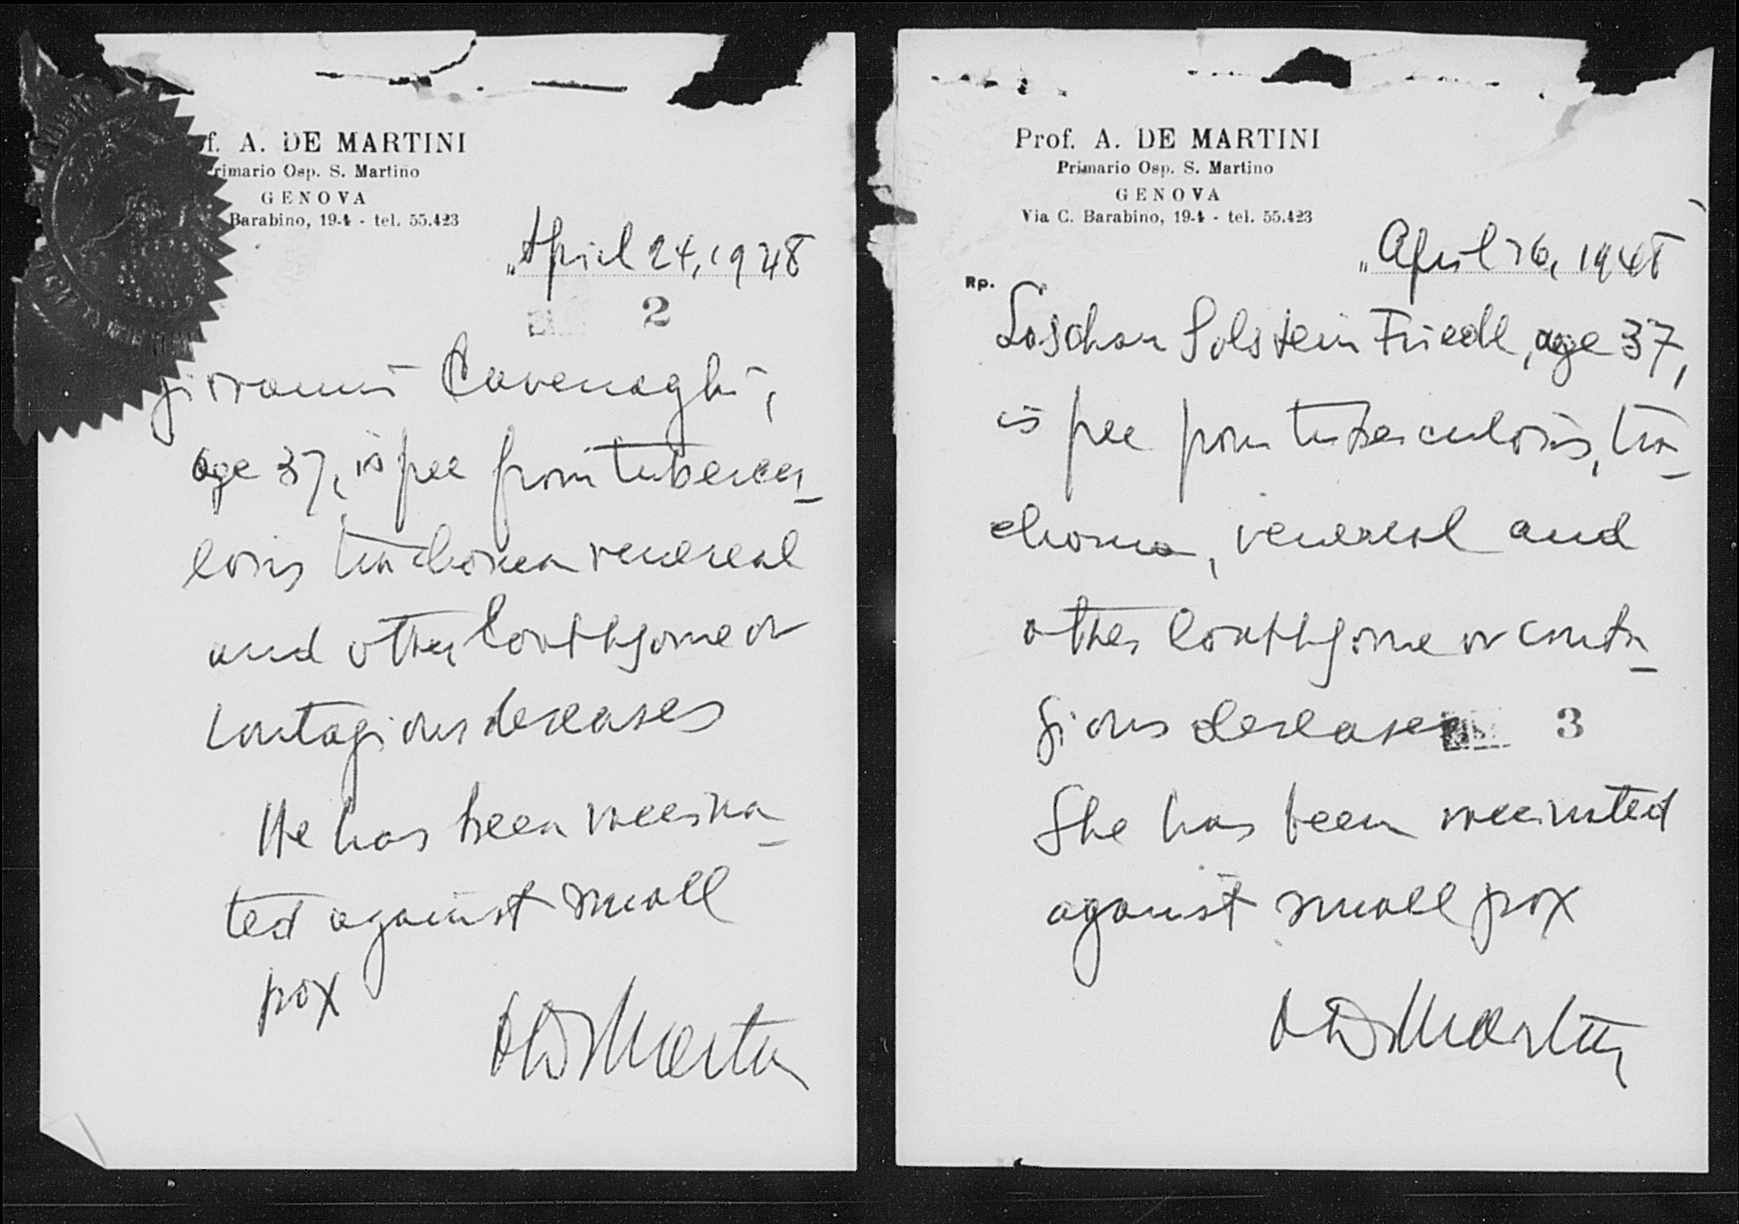 f. A. DE MARTINI
rimario Osp. S. Martino
GENOVA
Barabino, 19-4 - tel. 55.423
April 24, 1948
2
Giovanni Cavenaghi,
age 37, is free from tubercu_
losis trachoma venereal
and other loathsome or
contagious deseases
He has been vaccina_
ted against small
pox
A De Martini
Prof. A. DE MARTINI
Primario Osp. S. Martino
GENOVA
Via C. Barabino, 19-4 - tel. 55.423
April 26, 1948
Rp.
Solstein Friedl, age 37,
is free from tuberculosis, tra_
choma, venereal and
other loathsome or conta_
gious deseases
3
She has been vaccinated
against small pox
A De Martini